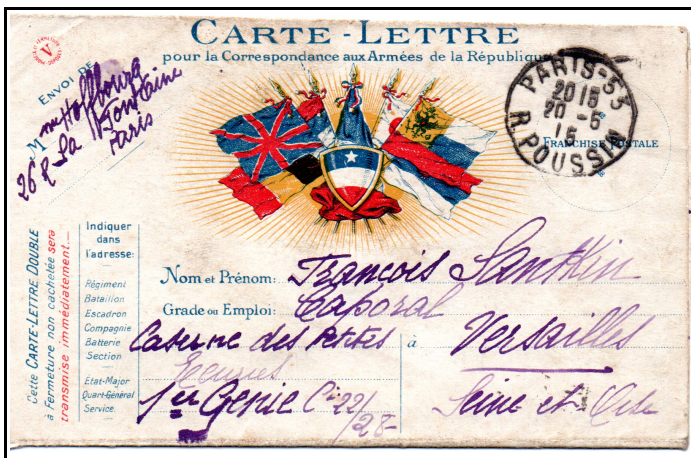 CARTE-LETTRE
pour la Correspondance aux Armées de la République
ENVOI DE
M me Hollbourg
26 R. La Fontaine
Paris
PARIS-53
20 15
20 -5
15
R. POUSSIN
FRANCHISE POSTALE
Cette CARTE-LETTRE DOUBLE
à Fermeture non cachetée sera
transmise immédiatement.
Indiquer
dans
l'adresse:
Régiment
Bataillon
Escadron
Compagnie
Batterie
Section
État-Major
Quart-Général
Service
Nom et Prénom: François
Grade ou Emploi: Caporal
Caserne des Petites à Versailles
Ecuries
1er Genie Cie 22/28
Seine et Oise